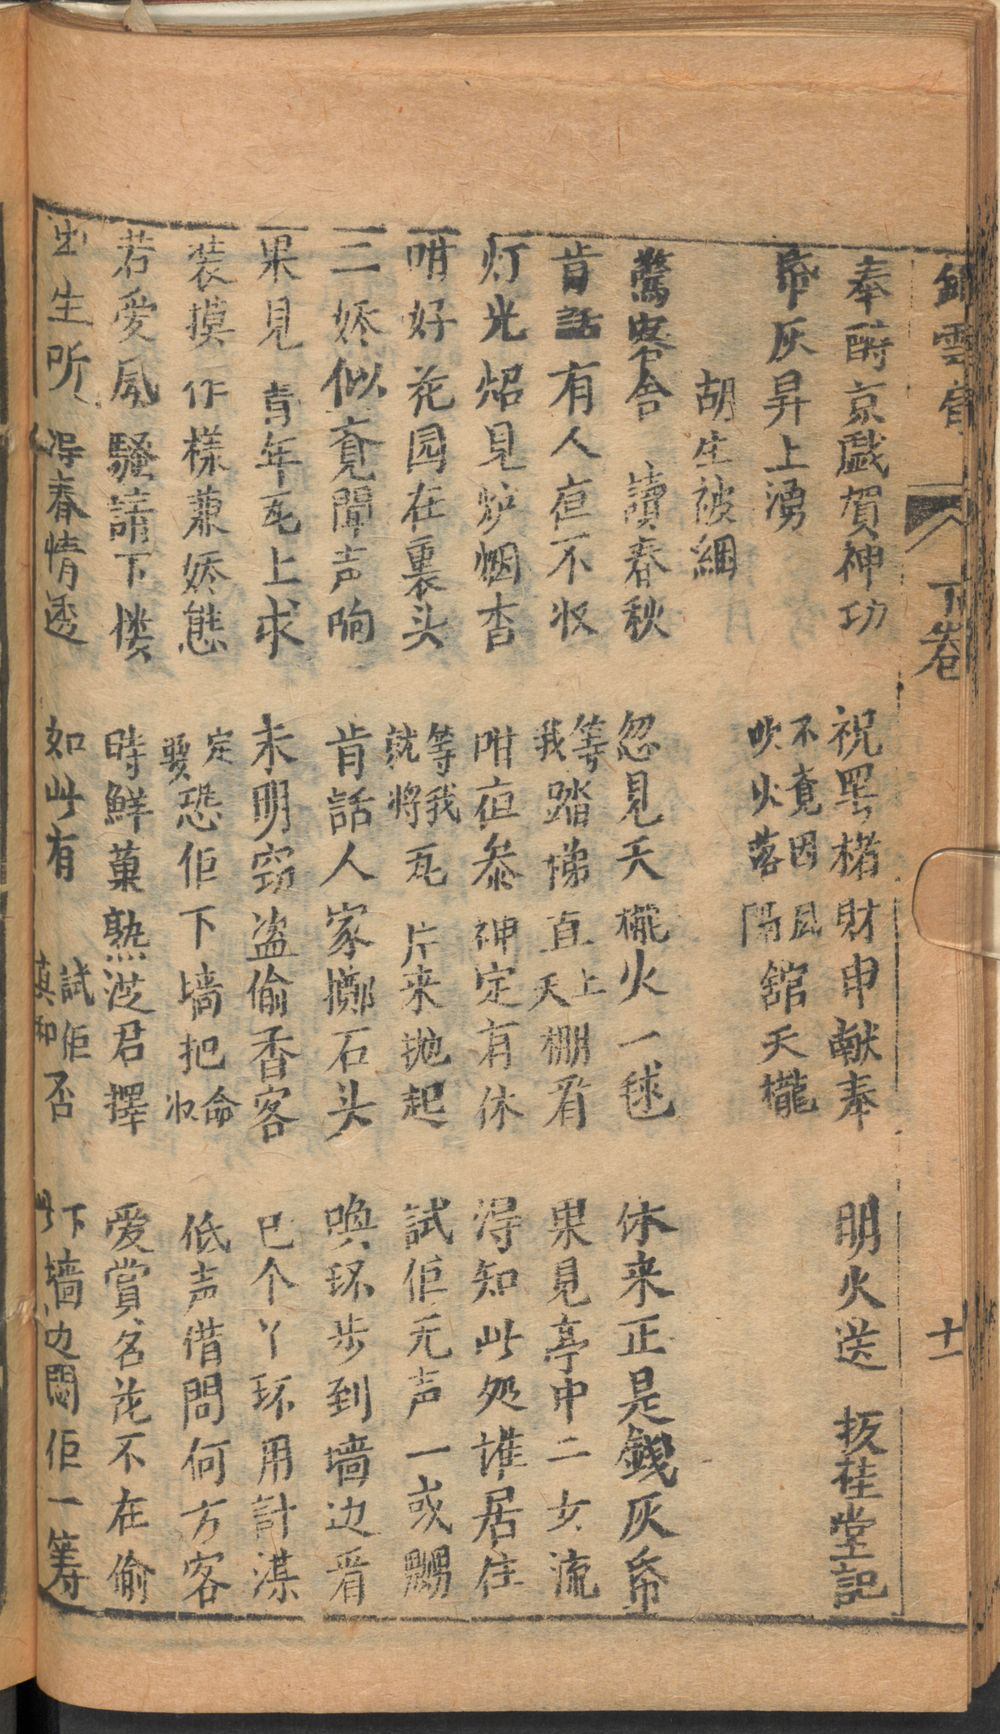 雲 下卷 十一
奉酧京戯賀神功 祝罢楮財申献奉 明火送 抜桂堂記
帋灰昇上湧 不竟因風吹火落隔舘天櫳
胡生被綑
驚客舍 讀春秋 忽見天櫳火一毬 休来正是錢灰帋
肯話有人夜不收 等我踏梯直上天棚看 果見亭中二女流
灯光炤見炉烟杳 咁夜叅神定有休 淂知此処誰居住
咁好花园在裏头 等我就将瓦片来抛起 試佢无声一或嬲
二娇似竟聞声响 肯話人家擲石头 喚环步到墙边看
果見青年瓦上求 未明窃盗偷香客 已个丫环用計谋
装摸作樣兼娇態 定要恐佢下墙把命收 低声借問何方客
若爱風騷請下楼 時鮮菓熟凴君擇 爱賞名花不在偷
出生所 淂春情透 如此有 試佢真和否 下墙边悶佢一筹